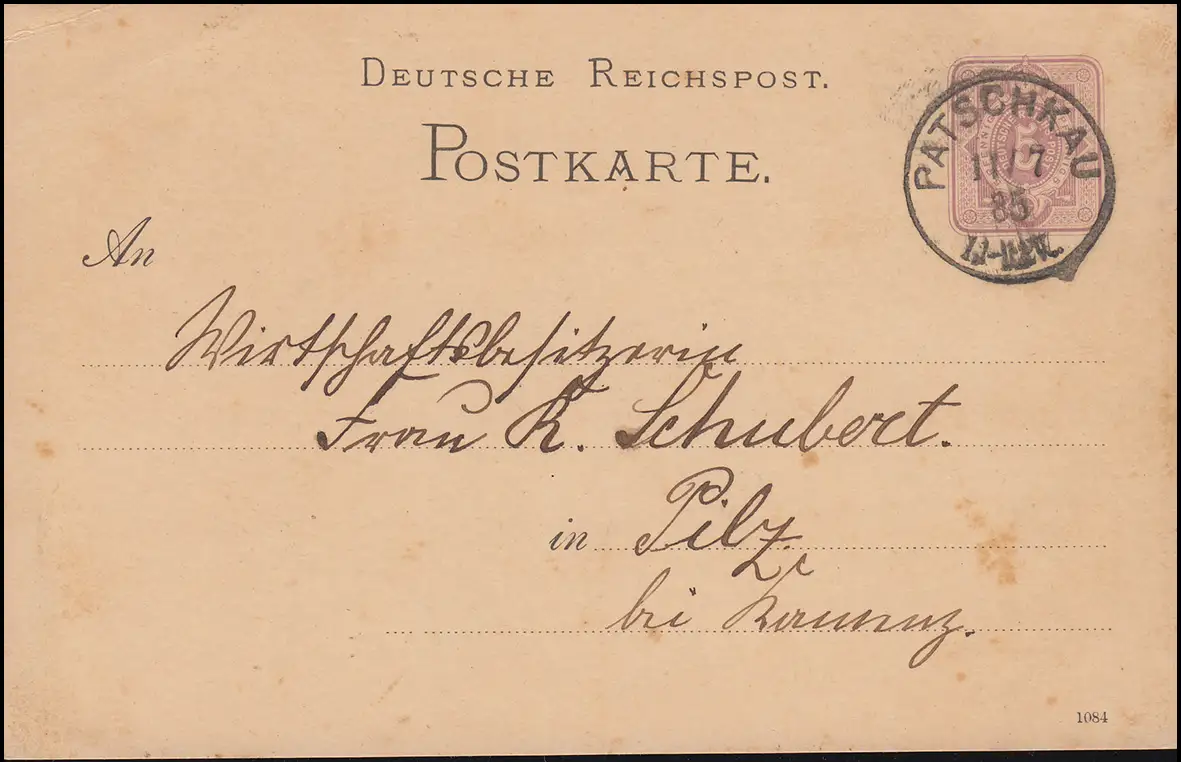 DEUTSCHE REICHSPOST.
POSTKARTE.
PATSCHKAU
11/7
85
An
Wirtschaftsbesitzerin
Frau K. Schubert.
in Pilz
bei Kamenz.
1084